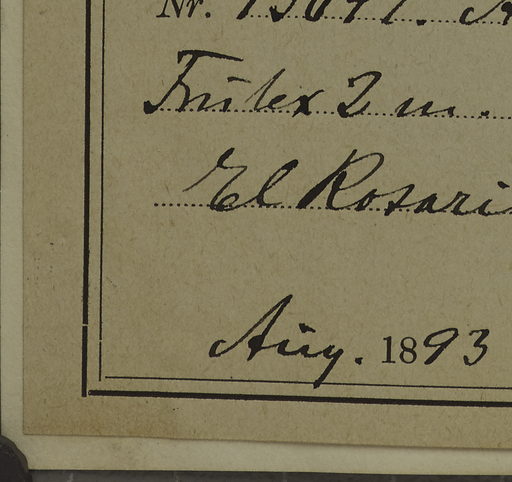 Nr.
Frutex 2 m.
El Rosari
Aug. 1893